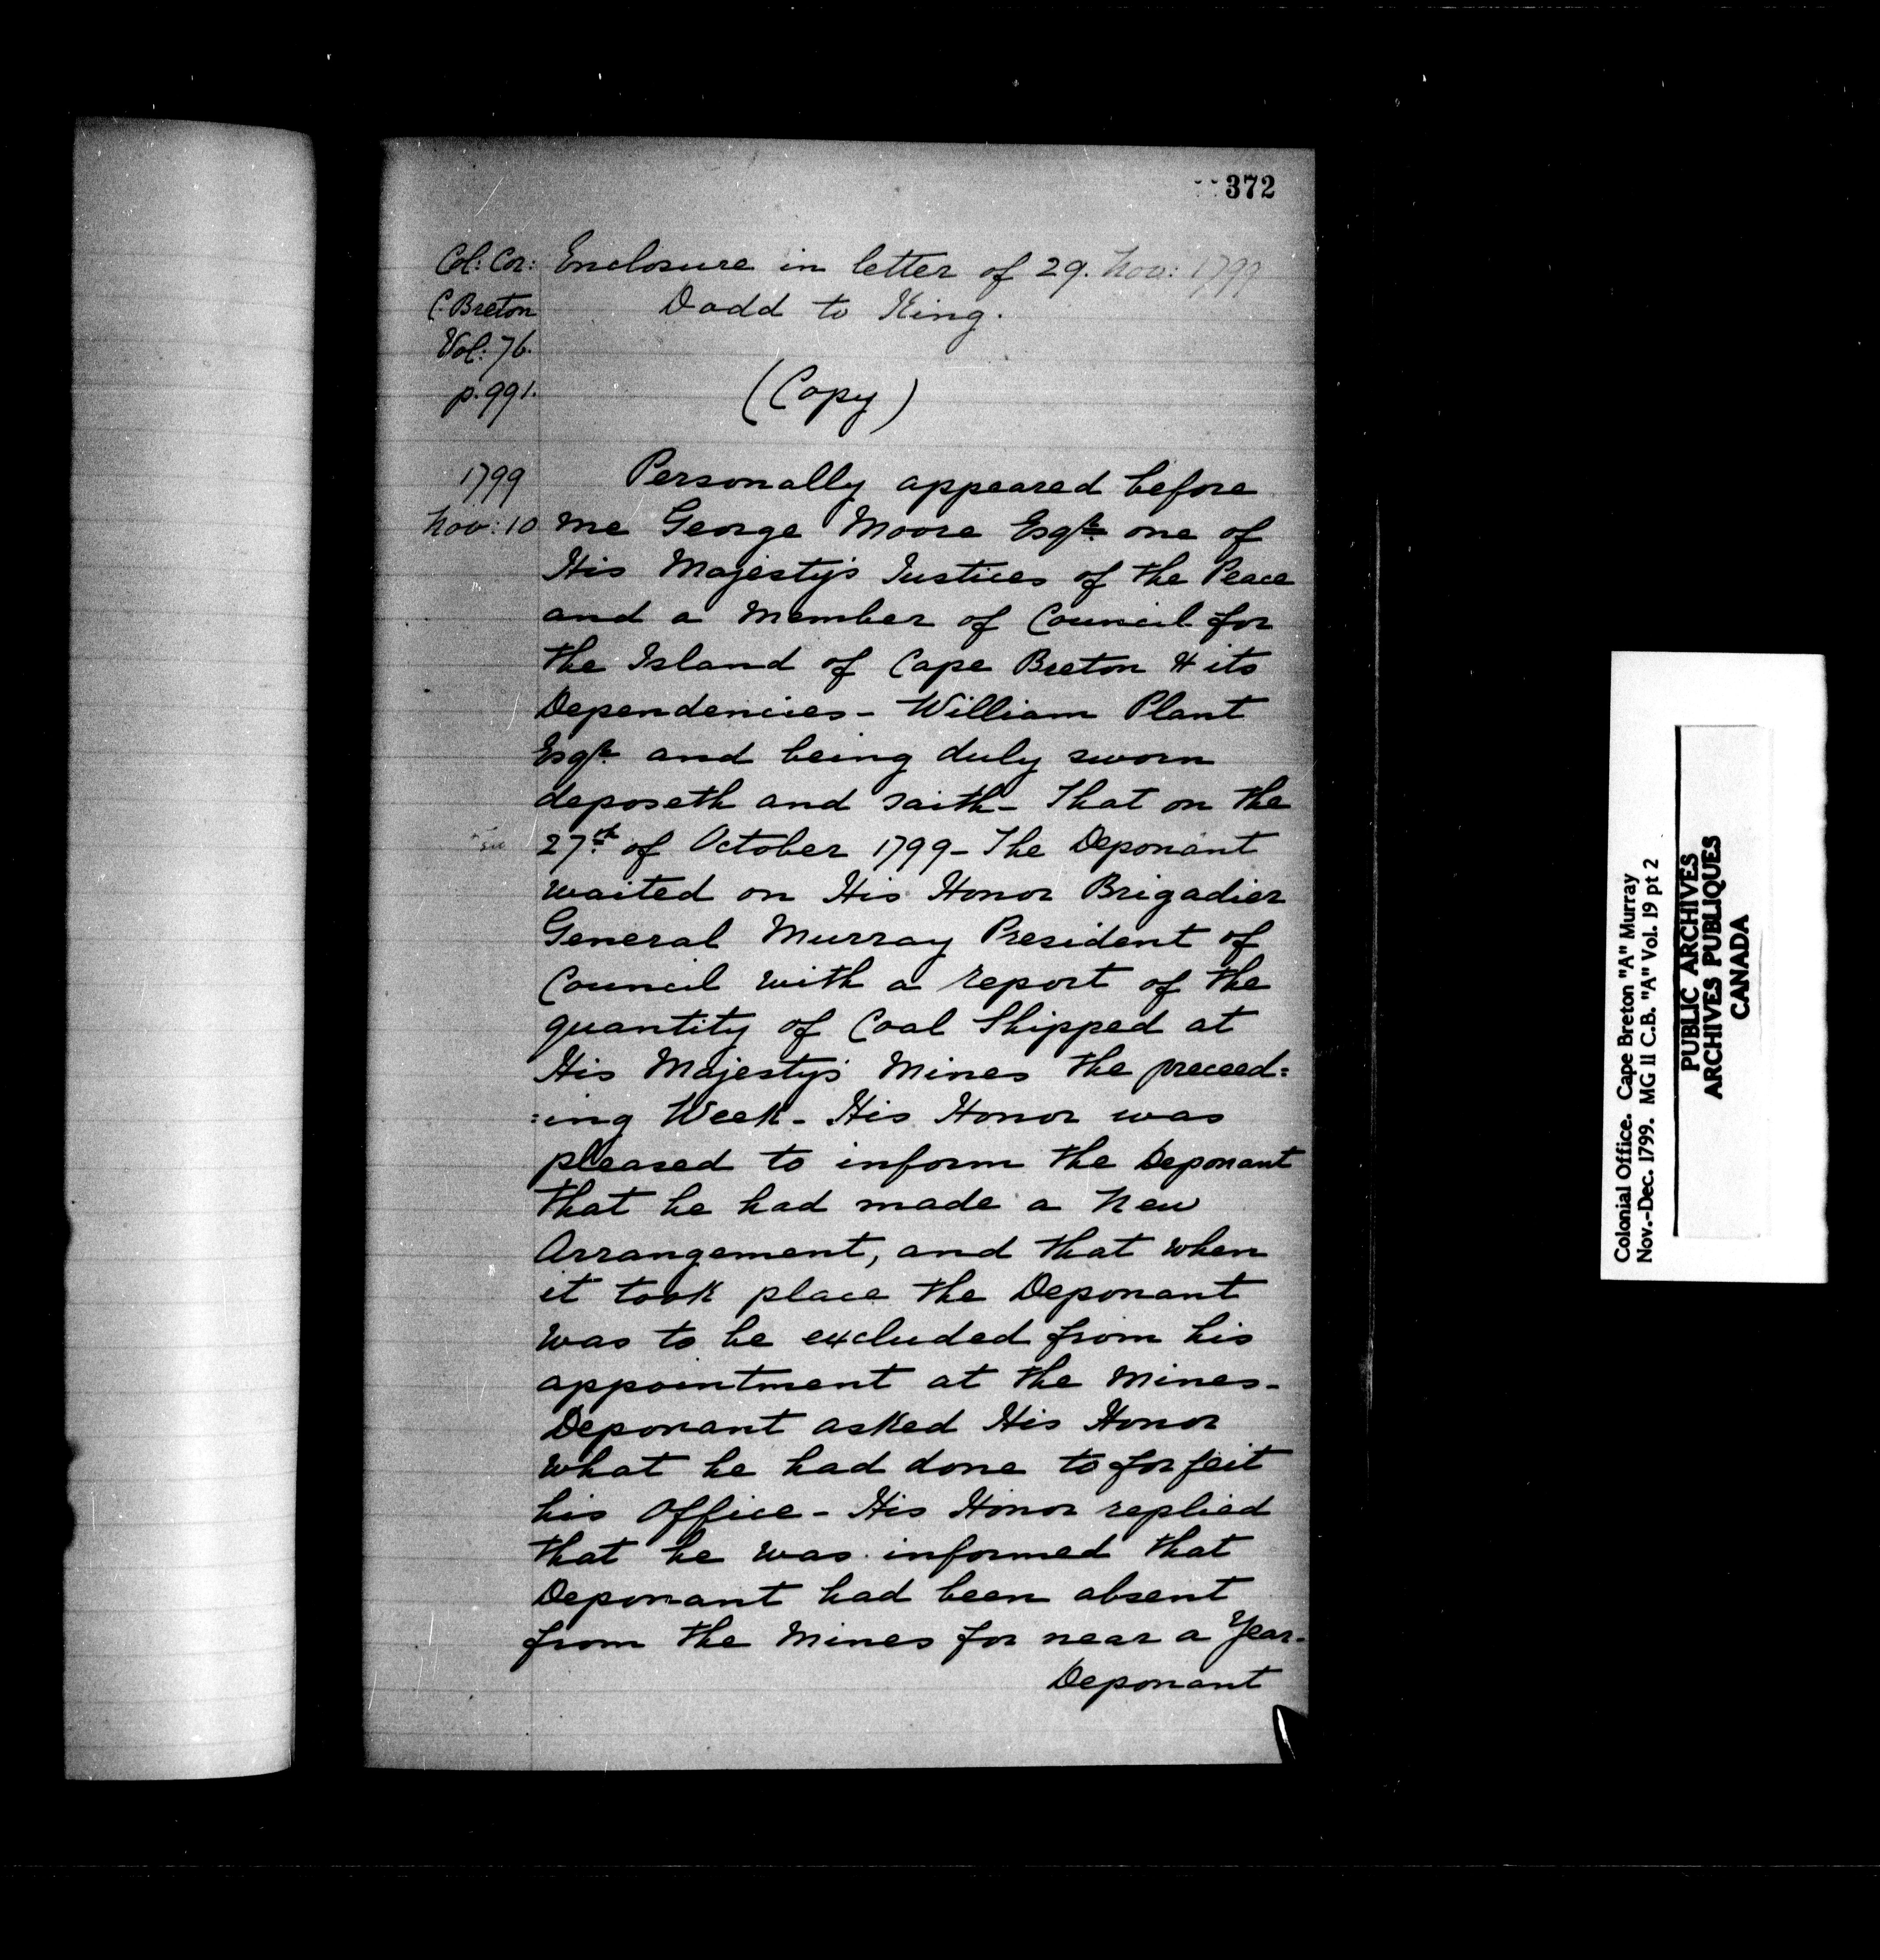 372
Col: Cor: Enclosure in letter of 29. Nov: 1799
C. Breton Dodd to King.
Vol: 76.
p. 991. (Copy)
1799 Personally appeared before
Nov: 10 me George Moore Esqr. one of
His Majesty's Justices of the Peace
and a Member of Council for
the Island of Cape Breton & its
Dependencies - William Plant
Esqr. and being duly sworn
deposeth and saith - That on the
27th of October 1799 - The Deponant
waited on His Honor Brigadier
General Murray President of
Council with a report of the
quantity of Coal Shipped at
His Majesty's Mines the preceed=
=ing Week - His Honor was
pleased to inform the Deponant
that he had made a New
Arrangement, and that when
it took place the Deponant
was to be excluded from his
appointment at the Mines -
Deponant asked His Honor
what he had done to forfeit
his Office - His Honor replied
that he was informed that
Deponant had been absent
from the Mines for near a Year -
Deponant
Colonial Office. Cape Breton "A" Murray
Nov.-Dec. 1799. MG 11 C.B. "A" Vol. 19 pt 2
PUBLIC ARCHIVES
ARCHIVES PUBLIQUES
CANADA